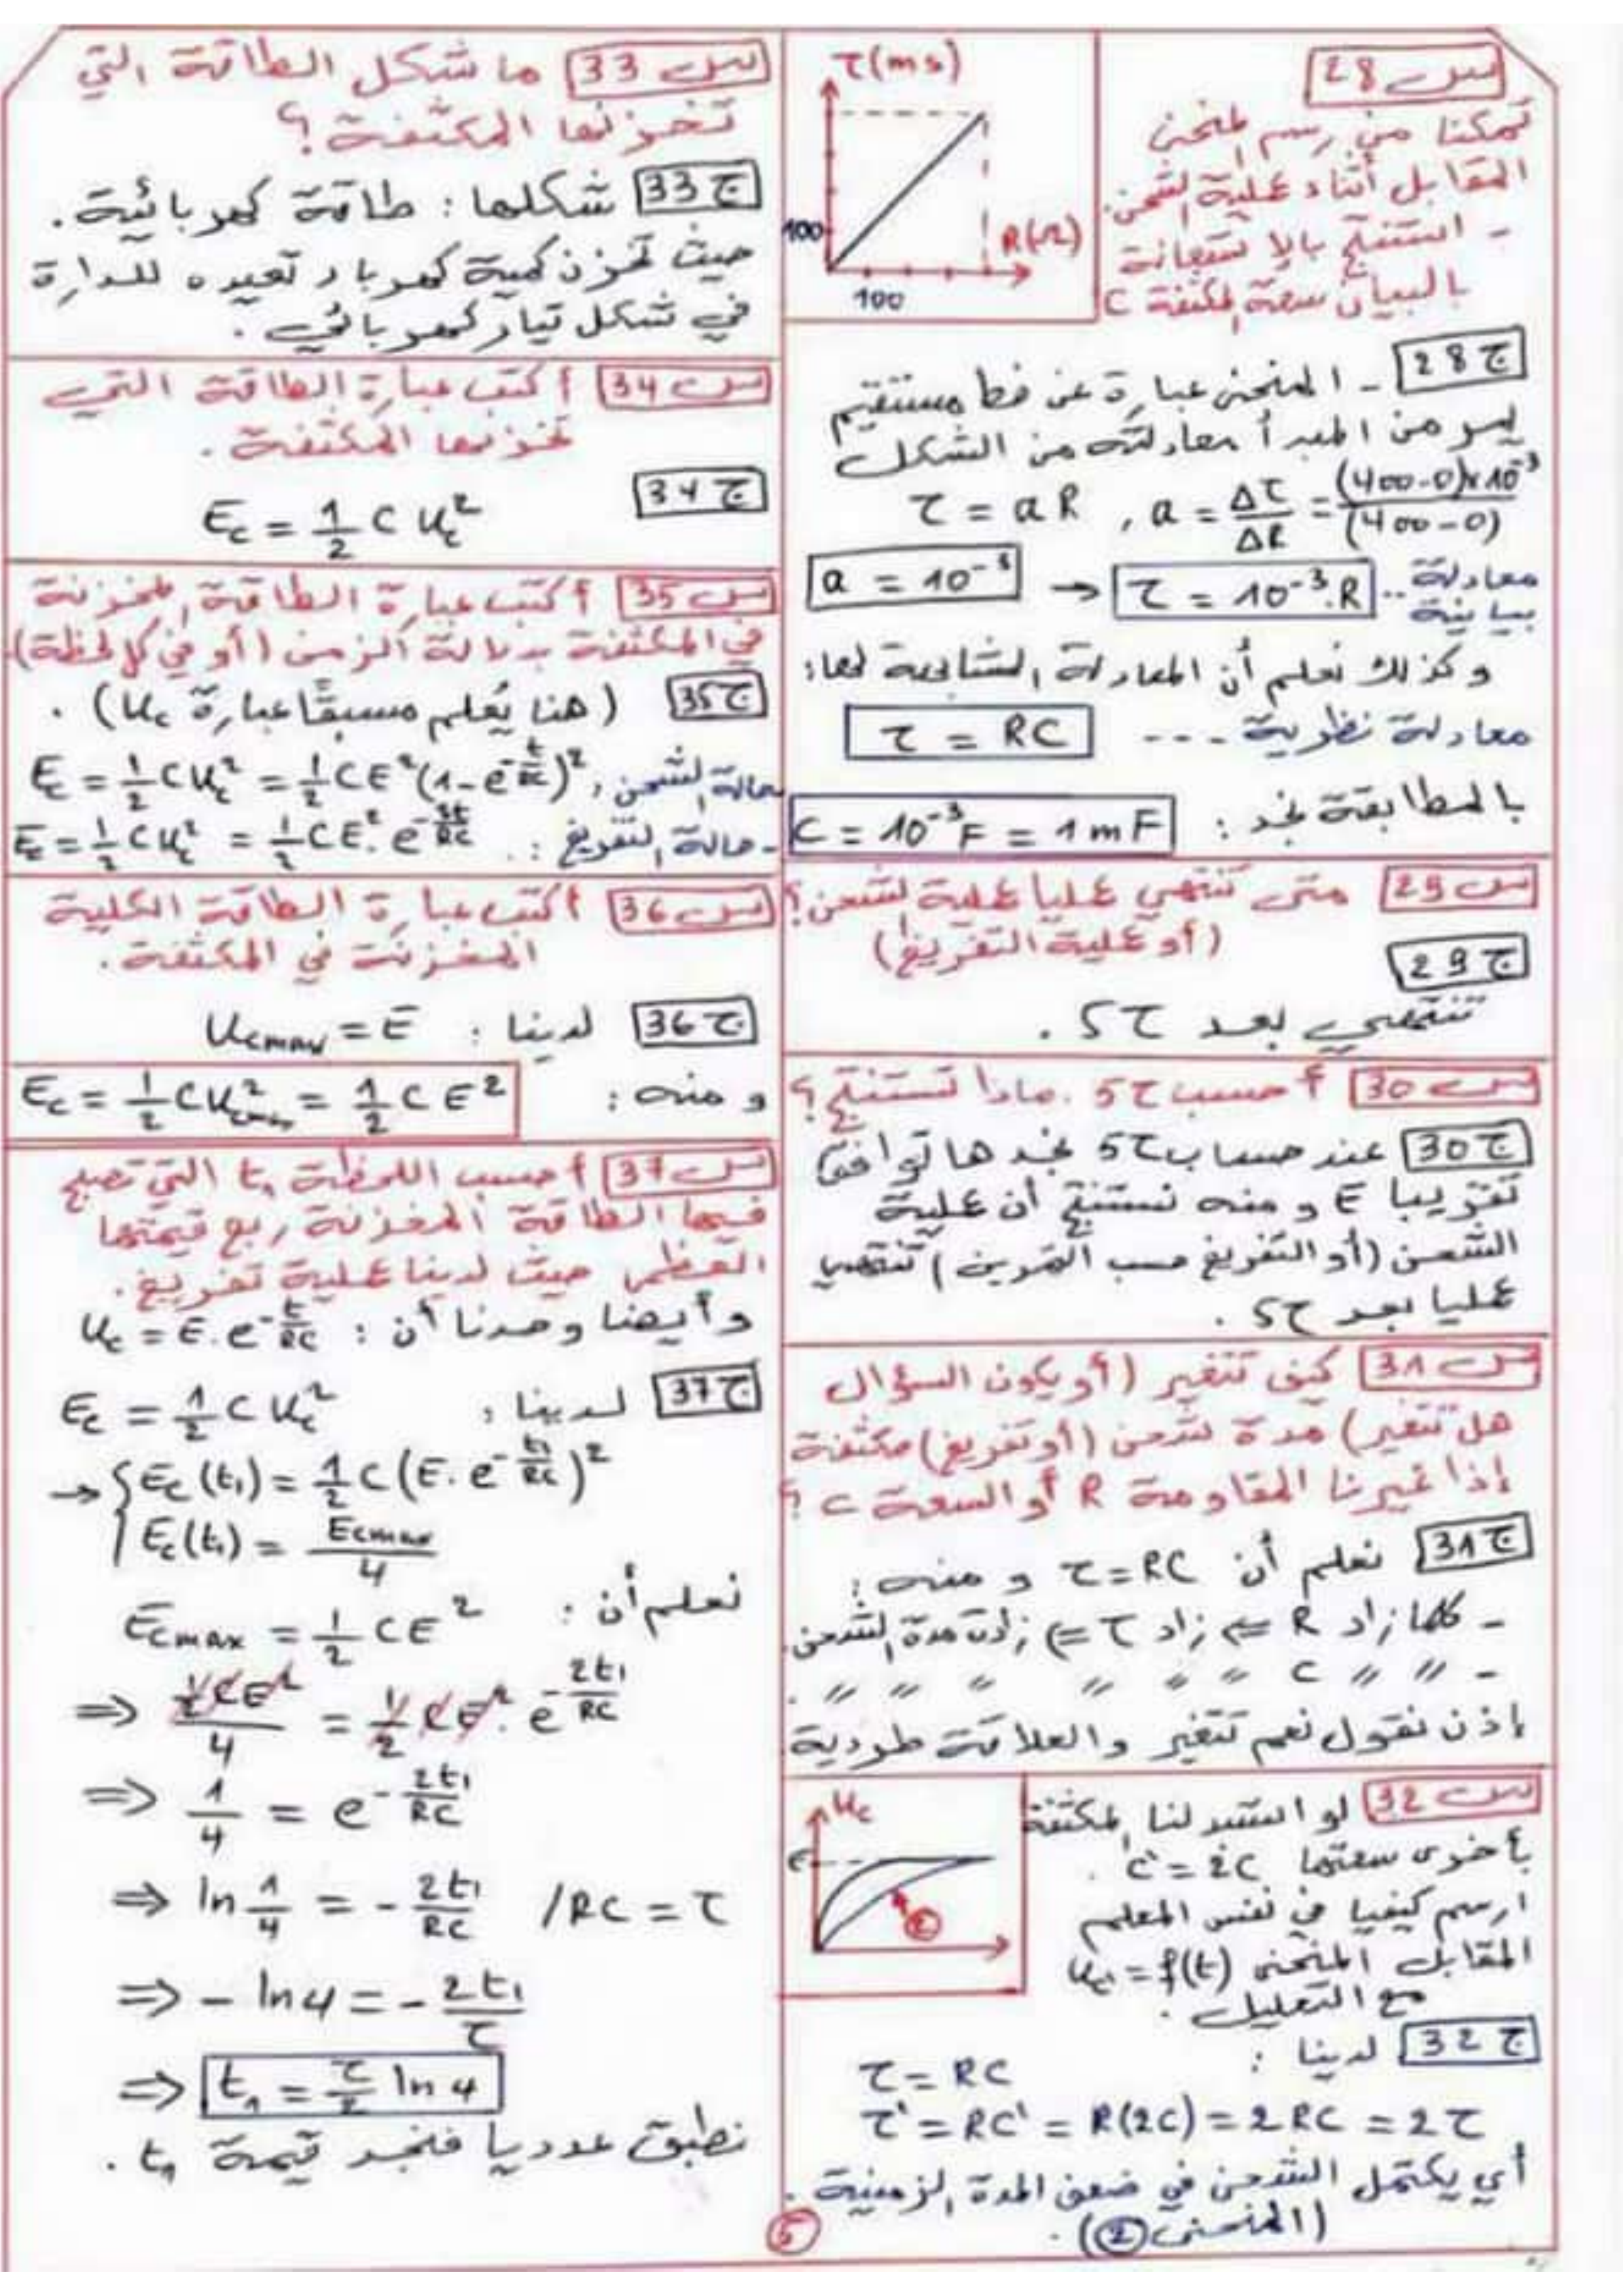 س 28
تمكنا من رسم المنحنى
المقابل أثناء عملية الشحن.
- استنتج بالاستعانة
بالبيان سعة المكثفة C
τ(ms)
100
R(Ω)
100
ج 28 - المنحنى عبارة عن خط مستقيم
يمر من المبدأ معادلته من الشكل
τ = a R , a = Δτ/ΔR = (400-0)×10⁻³/(400-0)
a = 10⁻³ → τ = 10⁻³.R معادلة..
بيانية
وكذلك نعلم أن المعادلة المشابهة لها:
τ = RC --- معادلة نظرية
بالمطابقة نجد : C = 10⁻³F = 1mF
س 29 متى تنتهي عمليا عملية الشحن؟
(أو عملية التفريغ)
ج 29
تنتهي بعد 5τ .
س 30 أحسب 5τ. ماذا تستنتج؟
ج 30 عند حساب 5τ نجدها توافق
تقريبا E ومنه نستنتج أن عملية
الشحن (أو التفريغ حسب التمرين) تنتهي
عمليا بعد 5τ .
س 31 كيف تتغير (أو يكون السؤال
هل تتغير) مدة شحن (أو تفريغ) مكثفة
إذا غيرنا المقاومة R أو السعة C ؟
ج 31 نعلم أن τ=RC ومنه :
- كلما زاد R ⇐ زاد τ ⇐ زادت مدة الشحن.
-〃 〃 C 〃 〃 〃 〃 〃 〃 .
إذن نقول نعم تتغير والعلاقة طردية
س 32 لو استبدلنا المكثفة
بأخرى سعتها C' = 2C .
ارسم كيفيا في نفس المعلم
المقابل المنحنى uc' = f(t)
مع التعليل .
uc
E
②
ج 32 لدينا :
τ = RC
τ' = RC' = R(2C) = 2RC = 2τ
أي يكتمل الشحن في ضعف المدة الزمنية .
(المنحنى ②) .
س 33 ما شكل الطاقة التي
تخزنها المكثفة ؟
ج 33 شكلها : طاقة كهربائية .
حيث تخزن كمية كهرباء تعيده للدارة
في شكل تيار كهربائي .
س 34 أكتب عبارة الطاقة التي
تخزنها المكثفة .
ج 34
Ec = 1/2 C uc²
س 35 أكتب عبارة الطاقة المخزنة
في المكثفة بدلالة الزمن (أو في كل لحظة).
ج 35 (هنا يُعلم مسبقًا عبارة uc) .
حالة الشحن, Ec = 1/2 C uc² = 1/2 C E² (1-e^(-t/RC))²
- حالة التفريغ : Ec = 1/2 C uc² = 1/2 C E². e^(-2t/RC)
س 36 أكتب عبارة الطاقة الكلية
المخزنة في المكثفة .
ج 36 لدينا : ucmax = E
ومنه : Ec = 1/2 C ucmax² = 1/2 C E²
س 37 أحسب اللحظة t₁ التي تصبح
فيها الطاقة المخزنة ربع قيمتها
العظمى حيث لدينا عملية تفريغ .
وأيضا وجدنا أن : uc = E.e^(-t/RC)
ج 37 لدينا : Ec = 1/2 C uc²
→ { Ec(t₁) = 1/2 C (E. e^(-t₁/RC))²
Ec(t₁) = Ecmax/4
نعلم أن : Ecmax = 1/2 C E²
⇒ (1/2 C E²)/4 = 1/2 C E². e^(-2t₁/RC)
⇒ 1/4 = e^(-2t₁/RC)
⇒ ln 1/4 = - 2t₁/RC /RC = τ
⇒ - ln4 = - 2t₁/τ
⇒ t₁ = τ/2 ln 4
نطبق عدديا فنجد قيمة t₁ .
5